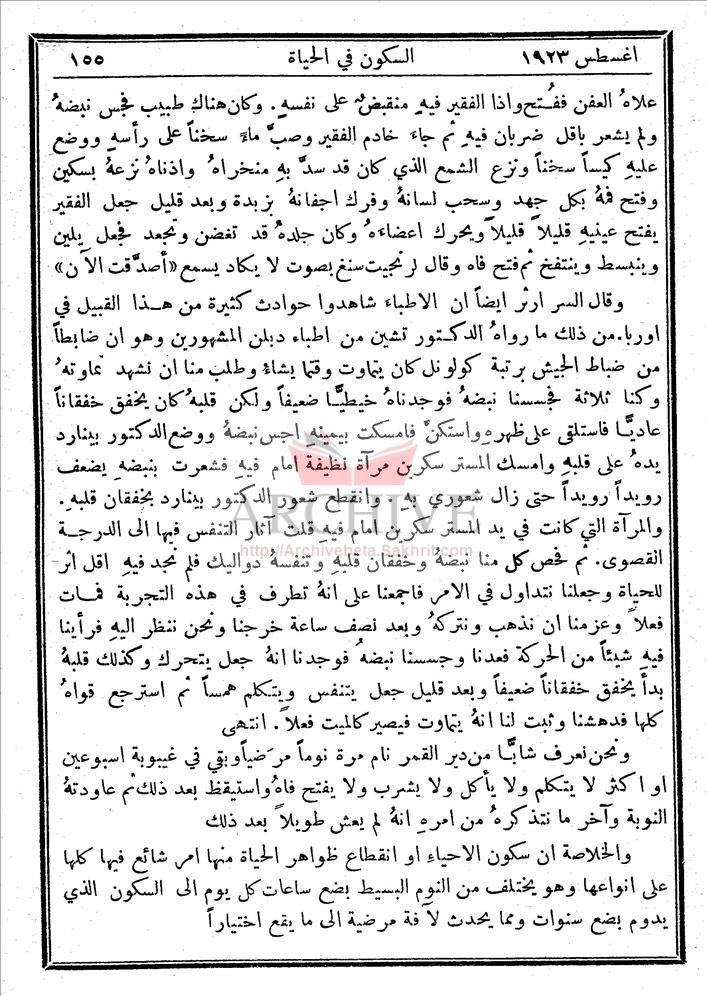 اغسطس ١٩٢٣
السكون في الحياة
١٥٥
علاهُ العفن ففُتح واذا الفقير فيهِ منقبض على نفسهِ . وكان هناك طبيب فجس نبضهُ
ولم يشعر باقل ضربان فيهِ ثم جاءَ خادم الفقير وصبَّ ماءً سخناً على رأسهِ ووضع
عليهِ كيساً سخناً ونزع الشمع الذي كان قد سدَّ بهِ منخراهُ واذناهُ نزعهُ بسكين
وفتح فمهُ بكل جهد وسحب لسانهُ وفرك اجفانهُ بزبدة وبعد قليل جعل الفقير
يفتح عينيهِ قليلاً قليلاً ويحرك اعضاءهُ وكان جلدهُ قد تغضن وتجعد فجعل يلين
وينبسط وينتفخ ثم فتح فاه وقال لرنجيت سنغ بصوت لا يكاد يسمع «أصدَّقت الآن»
وقال السر ارثر ايضاً ان الاطباء شاهدوا حوادث كثيرة من هذا القبيل في
اوربا. من ذلك ما رواهُ الدكتور تشين من اطباء دبلن المشهورين وهو ان ضابطاً
من ضباط الجيش برتبة كولونل كان يتماوت وقتما يشاء وطلب منا ان نشهد تماوتهُ
وكنا ثلاثة فجسسنا نبضهُ فوجدناهُ خيطيًّا ضعيفاً ولكن قلبهُ كان يخفق خفقاناً
عاديًّا فاستلقى على ظهرهِ واستكنَّ فامسكت بيمينهِ اجس نبضهُ ووضع الدكتور بينارد
يدهُ على قلبهِ وامسك المستر سكرين مرآة نظيفة امام فيهِ فشعرت بنبضهِ يضعف
رويداً رويداً حتى زال شعوري بهِ . وانقطع شعور الدكتور بينارد بخفقان قلبهِ .
ARCHIVE
والمرآة التي كانت في يد المستر سكرين امام فيهِ قلت آثار التنفس فيها الى الدرجة
http://Archivebeta.Sakhrit.com
القصوى. ثم فحص كل منا نبضهُ وخفقان قلبهِ وتنفسهُ دواليك فلم نجد فيهِ اقل اثر
للحياة وجعلنا نتداول في الامر فاجمعنا على انهُ تطرف في هذه التجربة فمات
فعلاً وعزمنا ان نذهب ونتركهُ وبعد نصف ساعة خرجنا ونحن ننظر اليهِ فرأينا
فيهِ شيئاً من الحركة فعدنا وجسسنا نبضهُ فوجدنا انهُ جعل يتحرك وكذلك قلبهُ
بدأَ يخفق خفقاناً ضعيفاً وبعد قليل جعل يتنفس ويتكلم همساً ثم استرجع قواهُ
كلها فدهشنا وثبت لنا انهُ يتماوت فيصير كالميت فعلاً . انتهى
ونحن نعرف شابًّا من دير القمر نام مرة نوماً مرَضياً وبقي في غيبوبة اسبوعين
او اكثر لا يتكلم ولا يأكل ولا يشرب ولا يفتح فاهُ واستيقظ بعد ذلك ثم عاودتهُ
النوبة وآخر ما نتذكرهُ من امرهِ انهُ لم يعش طويلاً بعد ذلك
والخلاصة ان سكون الاحياء او انقطاع ظواهر الحياة منها امر شائع فيها كلها
على انواعها وهو يختلف من النوم البسيط بضع ساعات كل يوم الى السكون الذي
يدوم بضع سنوات ومما يحدث لآفة مرضية الى ما يقع اختياراً